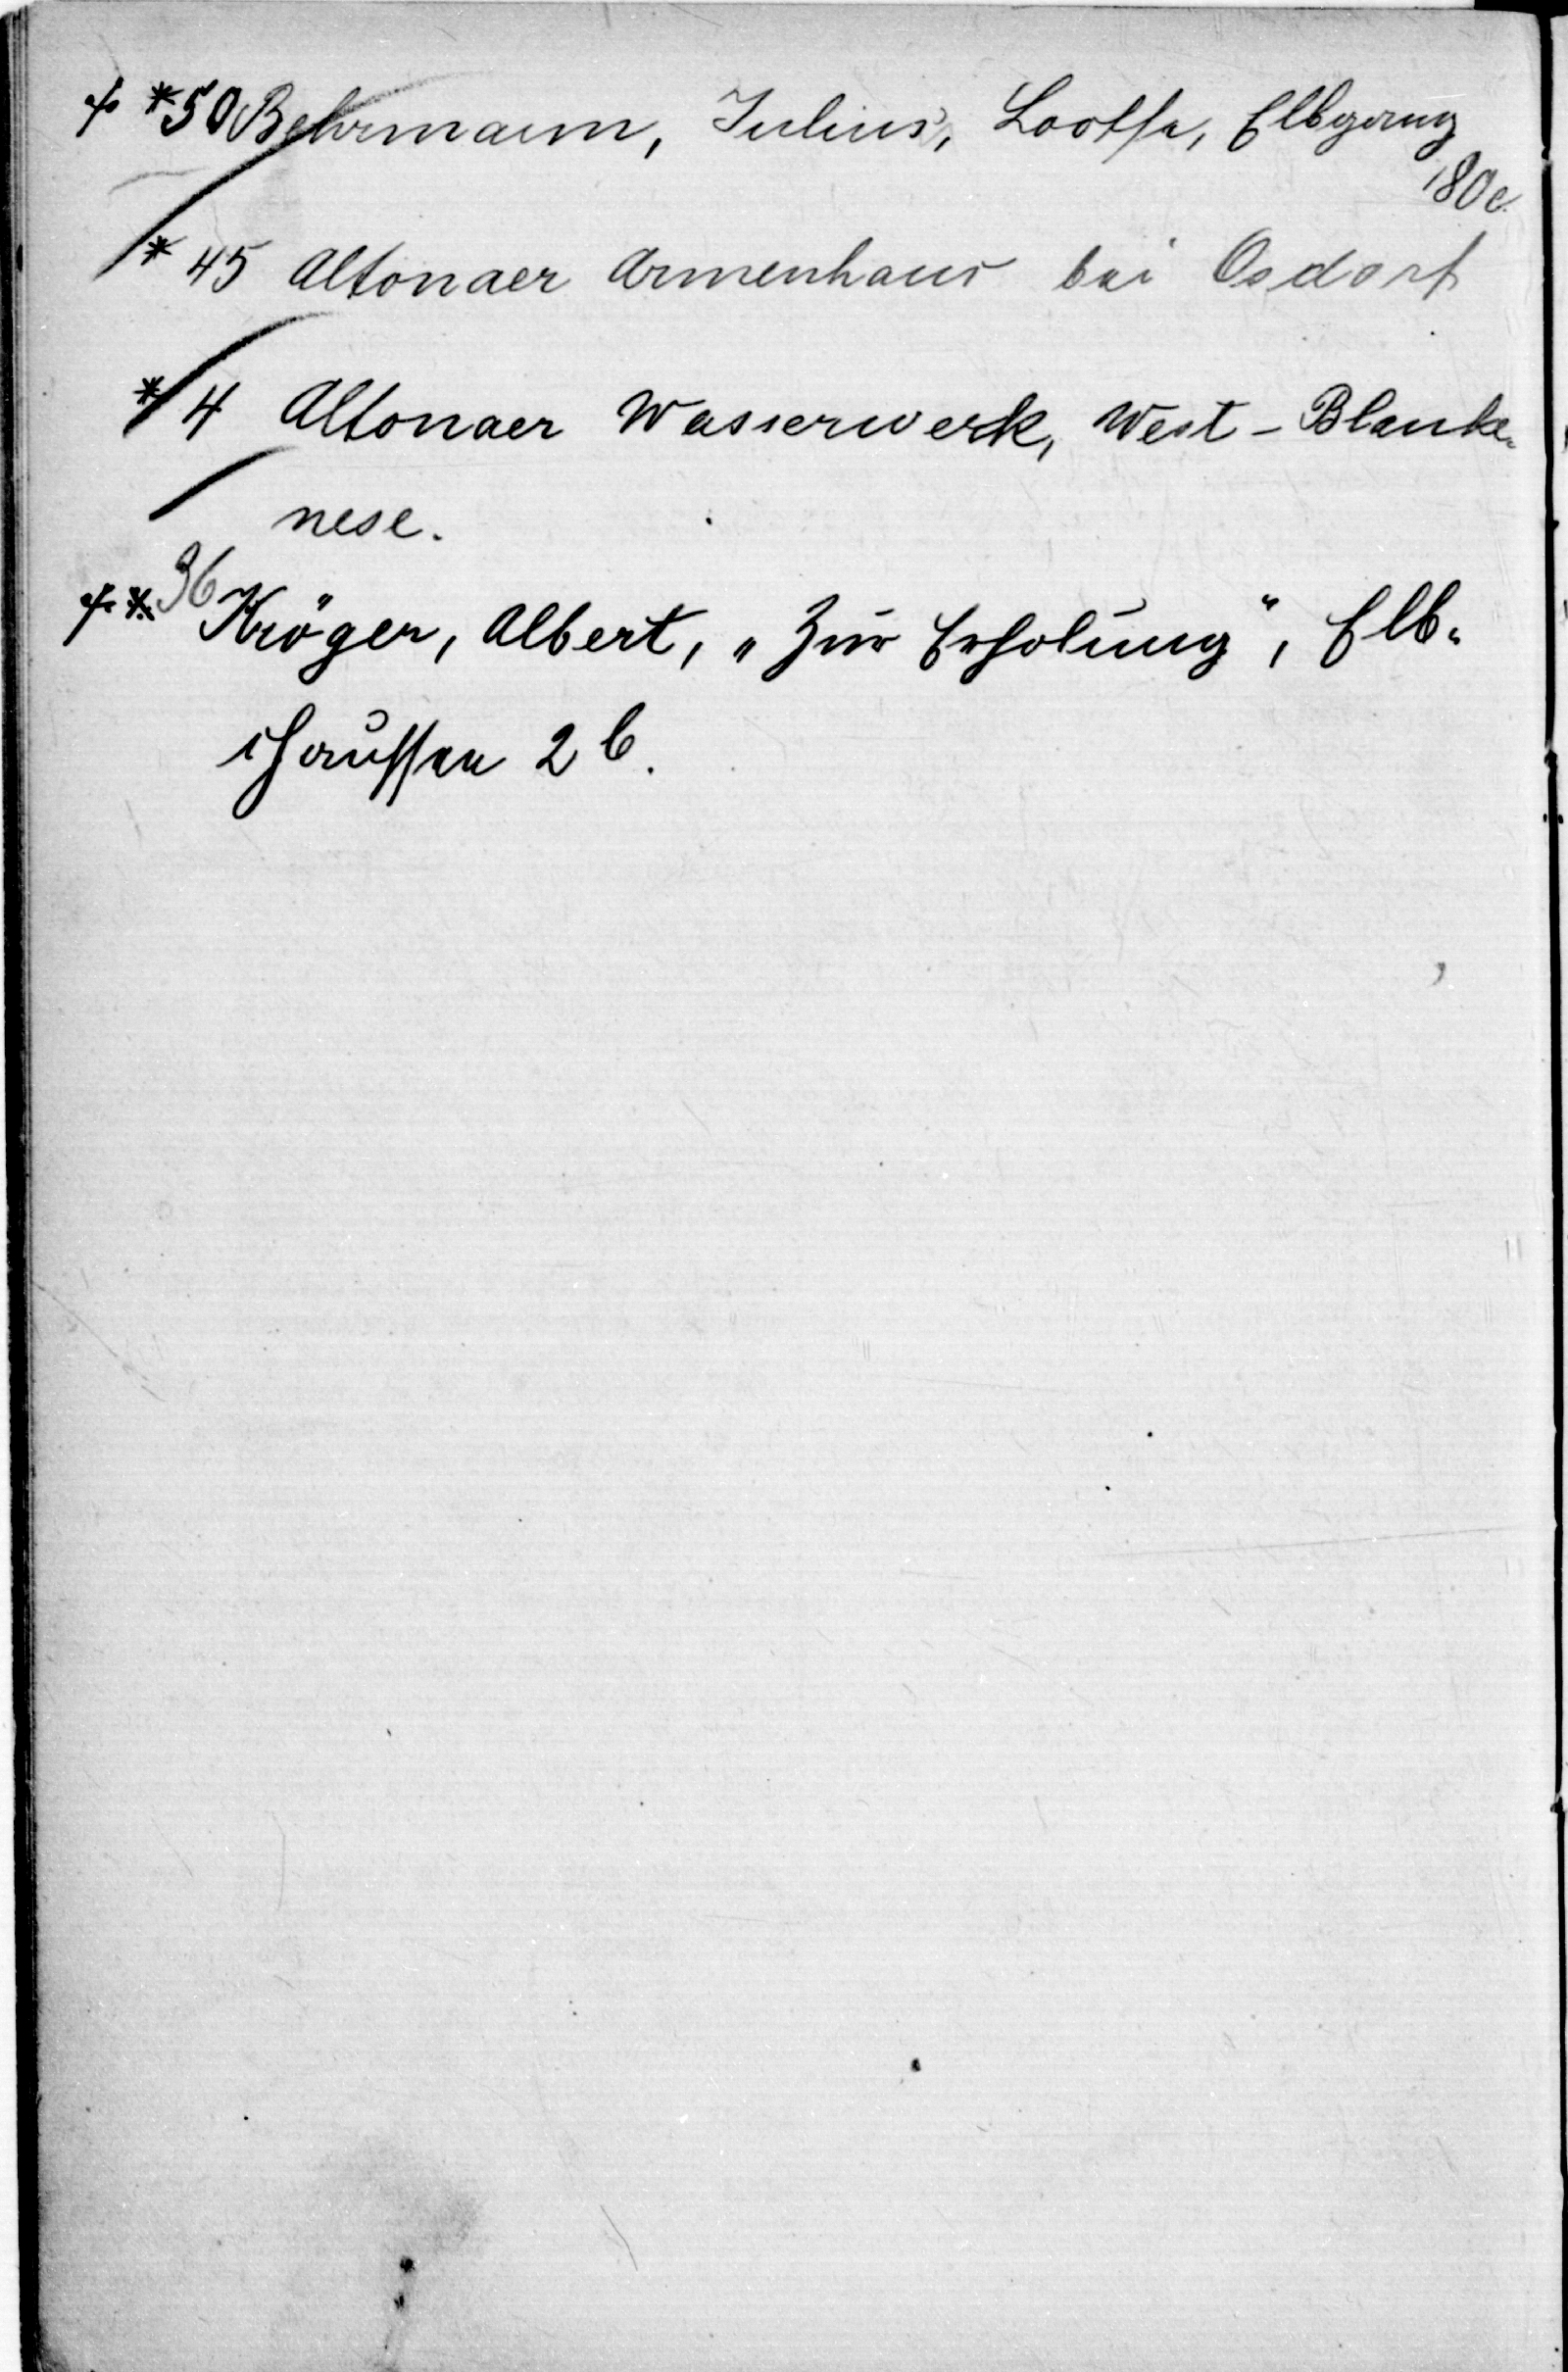 * 50 Behrmann, Julius, Lootse, Elbgang
80c.
* 45 Altonaer Armenhaus bei Osdorf
* 4 Altonaer Wasserwerk, West-Blanke-
nese.
* 36 Kröger, Albert, „Zur Erholung“, Elb-
chaussee 2b.